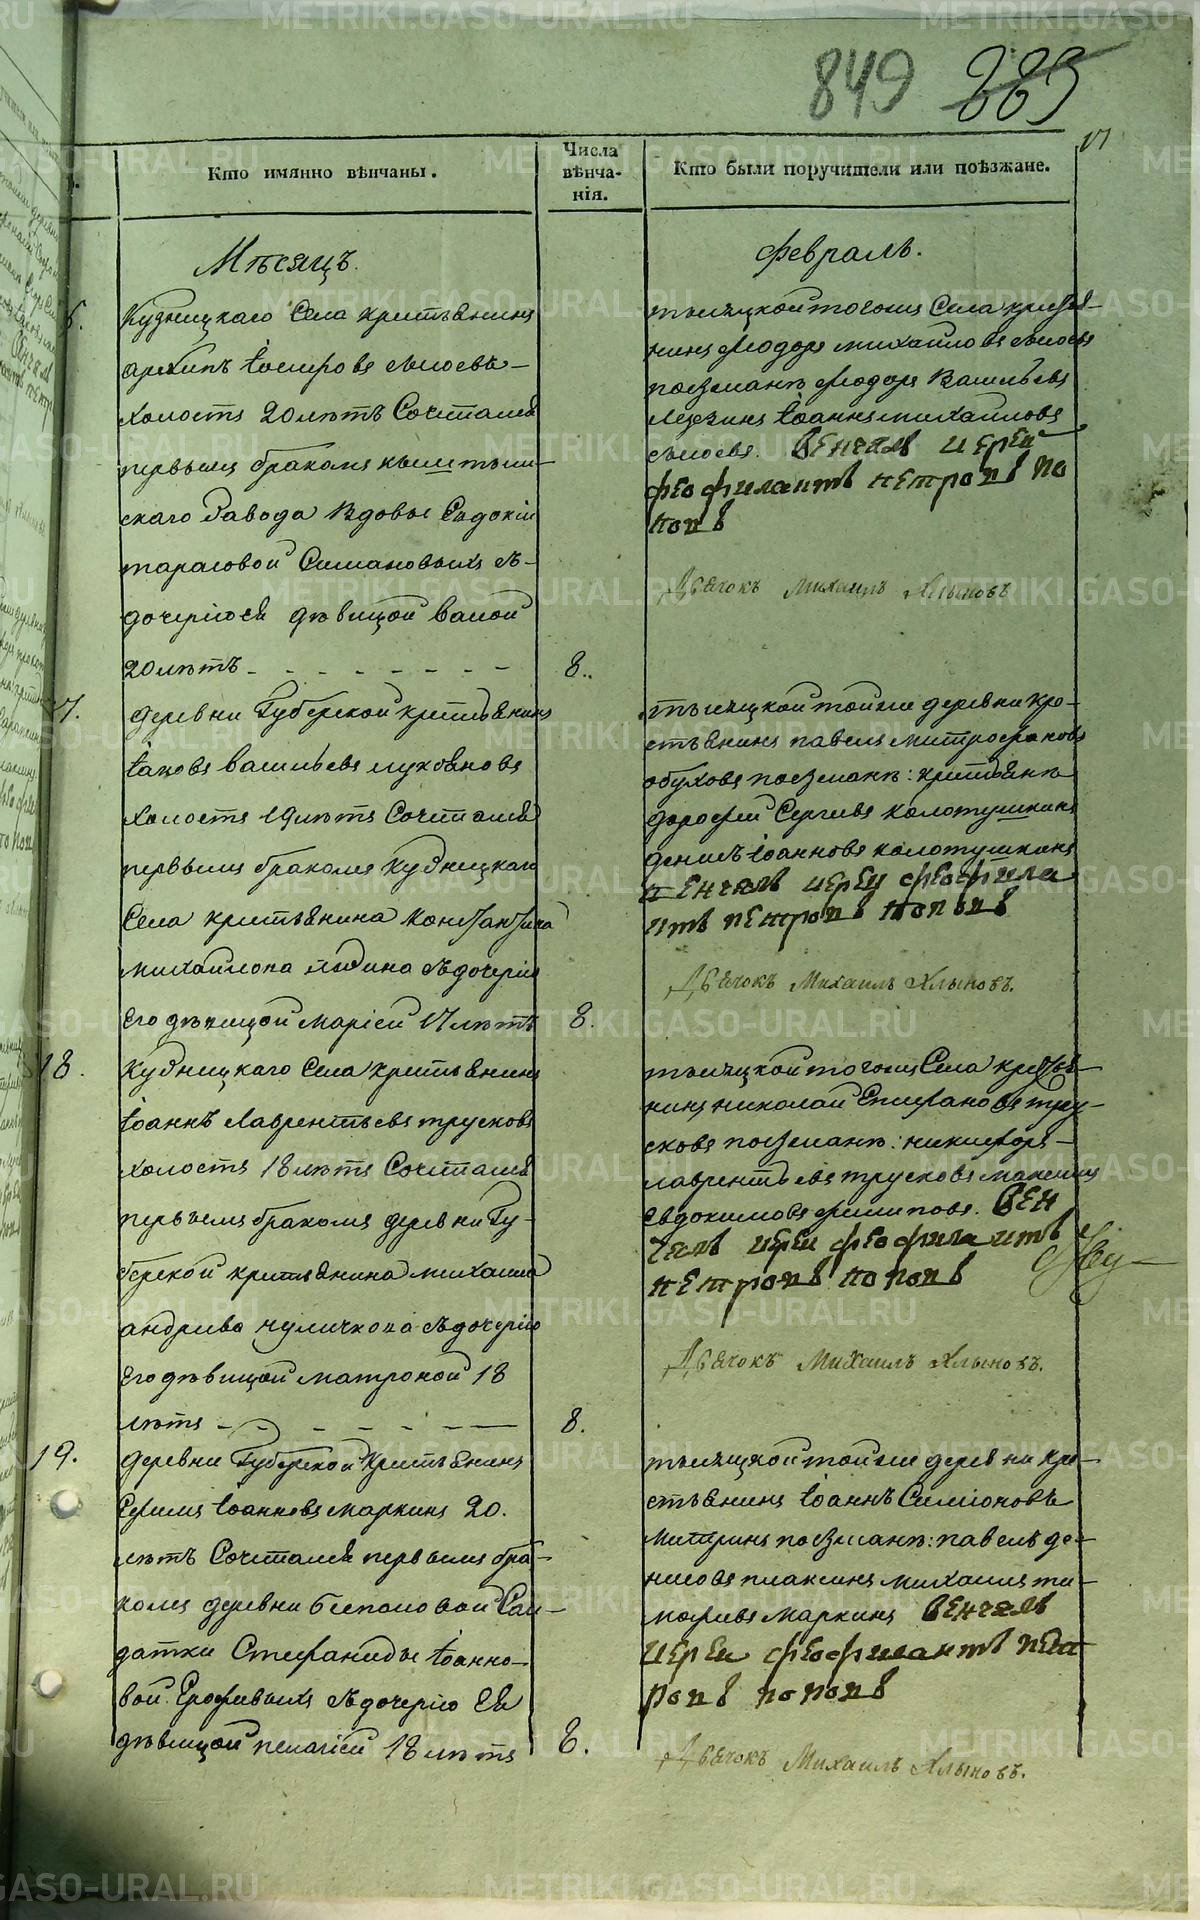 849 883
17
Кто имянно вѣнчаны.
Числа вѣнча-нія.
Кто были поручители или поѣзжане.
Мѣсяцъ
февраль.
6.
Кузницкаго Села крестьянинъ
архипъ
холостъ 20 лѣтъ Сочтался
первымъ бракомъ кыштым-
скаго Завода Вдовы Евдокіи
тарасовой Симановыхъ съ-
дочерію ея дѣвицой васой
20 лѣтъ
8.
тысяцкой того жъ Села кресьтя-
нинъ феодоръ михайловъ
поезжанѣ феодоръ Васильевъ
Іоаннъ михайловъ
венчалъ иерей
феофилактъ петровъ по
повъ
Дьячокъ Михаилъ Хлыновъ
17.
деревни Губерской крестьянинъ
Іаковъ васильевъ лукояновъ
холостъ 19 лѣтъ Сочтался
первымъ бракомъ Кузницкаго
Села крестьянина константина
михайлова юдина съ дочерію
его дѣвицой маріей 17 лѣтъ
8.
тысяцкой той же деревни кре-
стьянинъ павелъ митрофановъ
обуховъ поезжанѣ: крестьянѣ
дорофей Сергиевъ колотушкинъ
денисъ Іоанновъ колотушкинъ
венчалъ иерей феофила
ктъ петровъ поповъ
Дьячокъ Михаилъ Хлыновъ.
18.
Кузницкаго Села крестьянинъ
Іоаннъ Лаврентьевъ трусковъ
холостъ 18 лѣтъ Сочтался
первымъ бракомъ деревни Гу-
берской крестьянина михаила
андриева чуличкова съ дочерію
его дѣвицой матроной 18
лѣтъ
8.
тысяцкой того жъ Села крестья-
нинъ николай Епифановъ тру-
сковъ поезжанѣ: никифоръ
лаврентьевъ трусковъ максимъ
Евдокимовъ филиповъ. вен
чалъ иерей феофилактъ
петровъ поповъ
Дьячокъ Михаилъ Хлыновъ.
19.
деревни Губерской крестьянинъ
Ефимъ Іоанновъ маркинъ 20.
лѣтъ Сочтался первымъ бра-
комъ деревни Беспаловой Сал-
датки Стефаниды Іоанно-
вой Ерофивыхъ съ дочерію ея
дѣвицой пелагіей 18 лѣтъ
8.
тысяцкой той же деревни кре-
стьянинъ Іоаннъ Симіоновъ
митринъ поезжанѣ: павелъ де-
нисовъ плаксинъ михаилъ ти-
мофивъ маркинъ венчалъ
иерей феофилактъ пет
ровъ поповъ
Дьячокъ Михаилъ Хлыновъ.